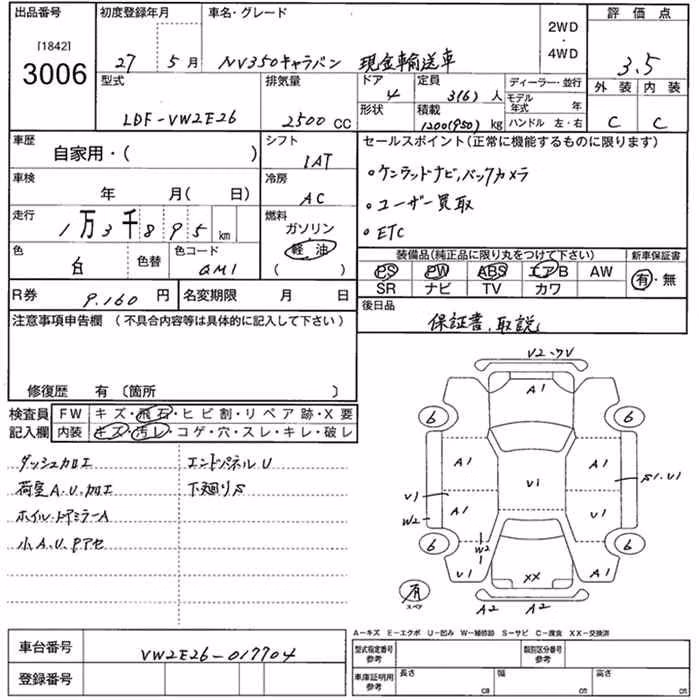 出品番号 [1842] 3006
初度登録年月 27 5月
車名・グレード NV350キャラバン 現金輸送車
2WD・4WD
評価点 3.5
外装 内装
C C
型式 LDF-VW2E26
排気量 2500 CC
ドア 4
形状
定員 3(6) 人
積載 1200(950) kg
ディーラー・並行
モデル年式 年
ハンドル 左・右
車歴 自家用・( )
シフト IAT
車検 年 月( 日)
冷房 AC
走行 1万3千895 km
燃料 ガソリン 軽油 ( )
色 白 色替 色コード QM1
セールスポイント(正常に機能するものに限ります)
・ケンウッドナビ,バックカメラ
・ユーザー買取
・ETC
装備品(純正品に限り丸をつけて下さい)
PS PW ABS エアB AW
SR ナビ TV カワ
新車保証書 有・無
R券 9.160 円 名変期限 月 日
後日品 保証書,取説
注意事項申告欄 (不具合内容等は具体的に記入して下さい)
修復歴 有〔箇所 〕
検査員記入欄
FW キズ・飛石・ヒビ割・リペア跡・X要
内装 キズ・汚レ・コゲ・穴・スレ・キレ・破レ
ダッシュカロエ エンドパネルU
荷室A.U.加工 下廻りS
ホイル・ドアミラーA
小A.U.Pアセ
V2-ワV
A1
6 6
A1 A1
V1 S1.U1
V1 A1 U1
W2
6 W2 6
V1 XX A1
有 スペア A2 A2
A-キズ E-エクボ U-凹み W-補修跡 S-サビ C-腐食 XX-交換済
車台番号 VW2E26-017704
登録番号
型式指定番号 参考 類別区分番号 参考
車庫証明用 参考 長さ cm 幅 cm 高さ cm